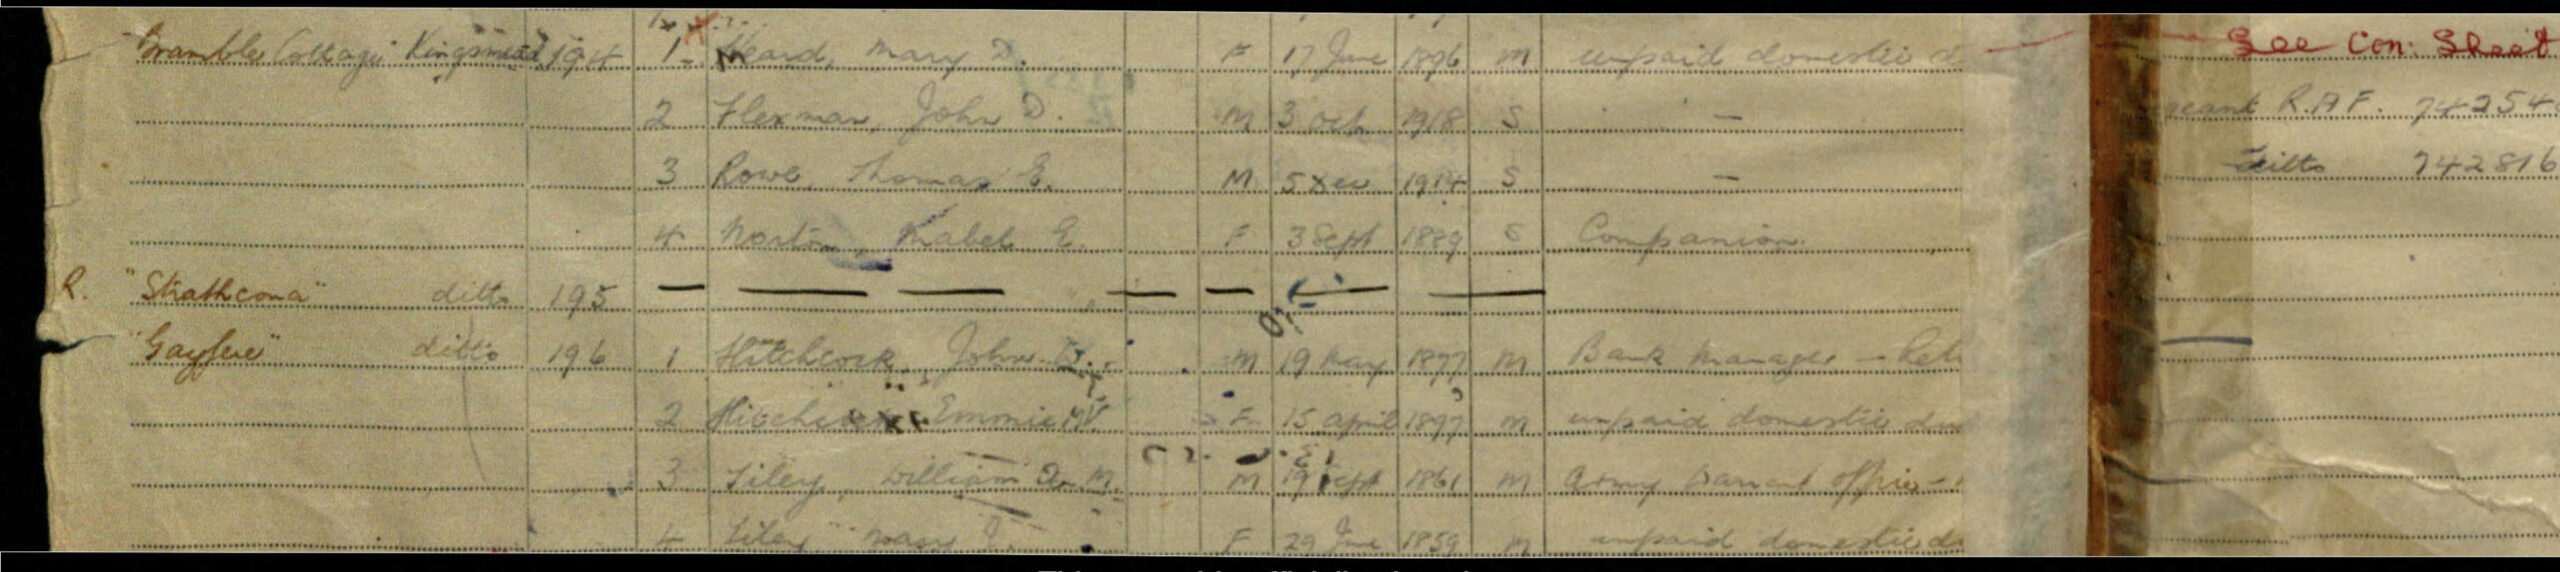 "Bramble Cottage" Kingsmead 194 1 Heard, Mary D. F 17 June 1896 M unpaid domestic d See Con: Sheet
2 Flexman, John D. M 3 Oct 1918 S — geant R.A.F. 74254
3 Rowe, Thomas E. M 5 Dec 1914 S — ditto 742816
4 Norton, Mabel E. F 3 Sept 1889 S Companion
R. "Strathcona" ditto 195 — — — — — — —
ditto 196 1 Hitchcock, John M 19 May 1877 M Bank Manager — Reti
2 Hitchcock Emmie M.V. F 15 April 1897 M unpaid domestic du
3 Tiley, William M. M 19 Sept 1861 M Army Warrant Officer —
4 Tiley, Mary J. F 29 June 1859 M unpaid domestic du